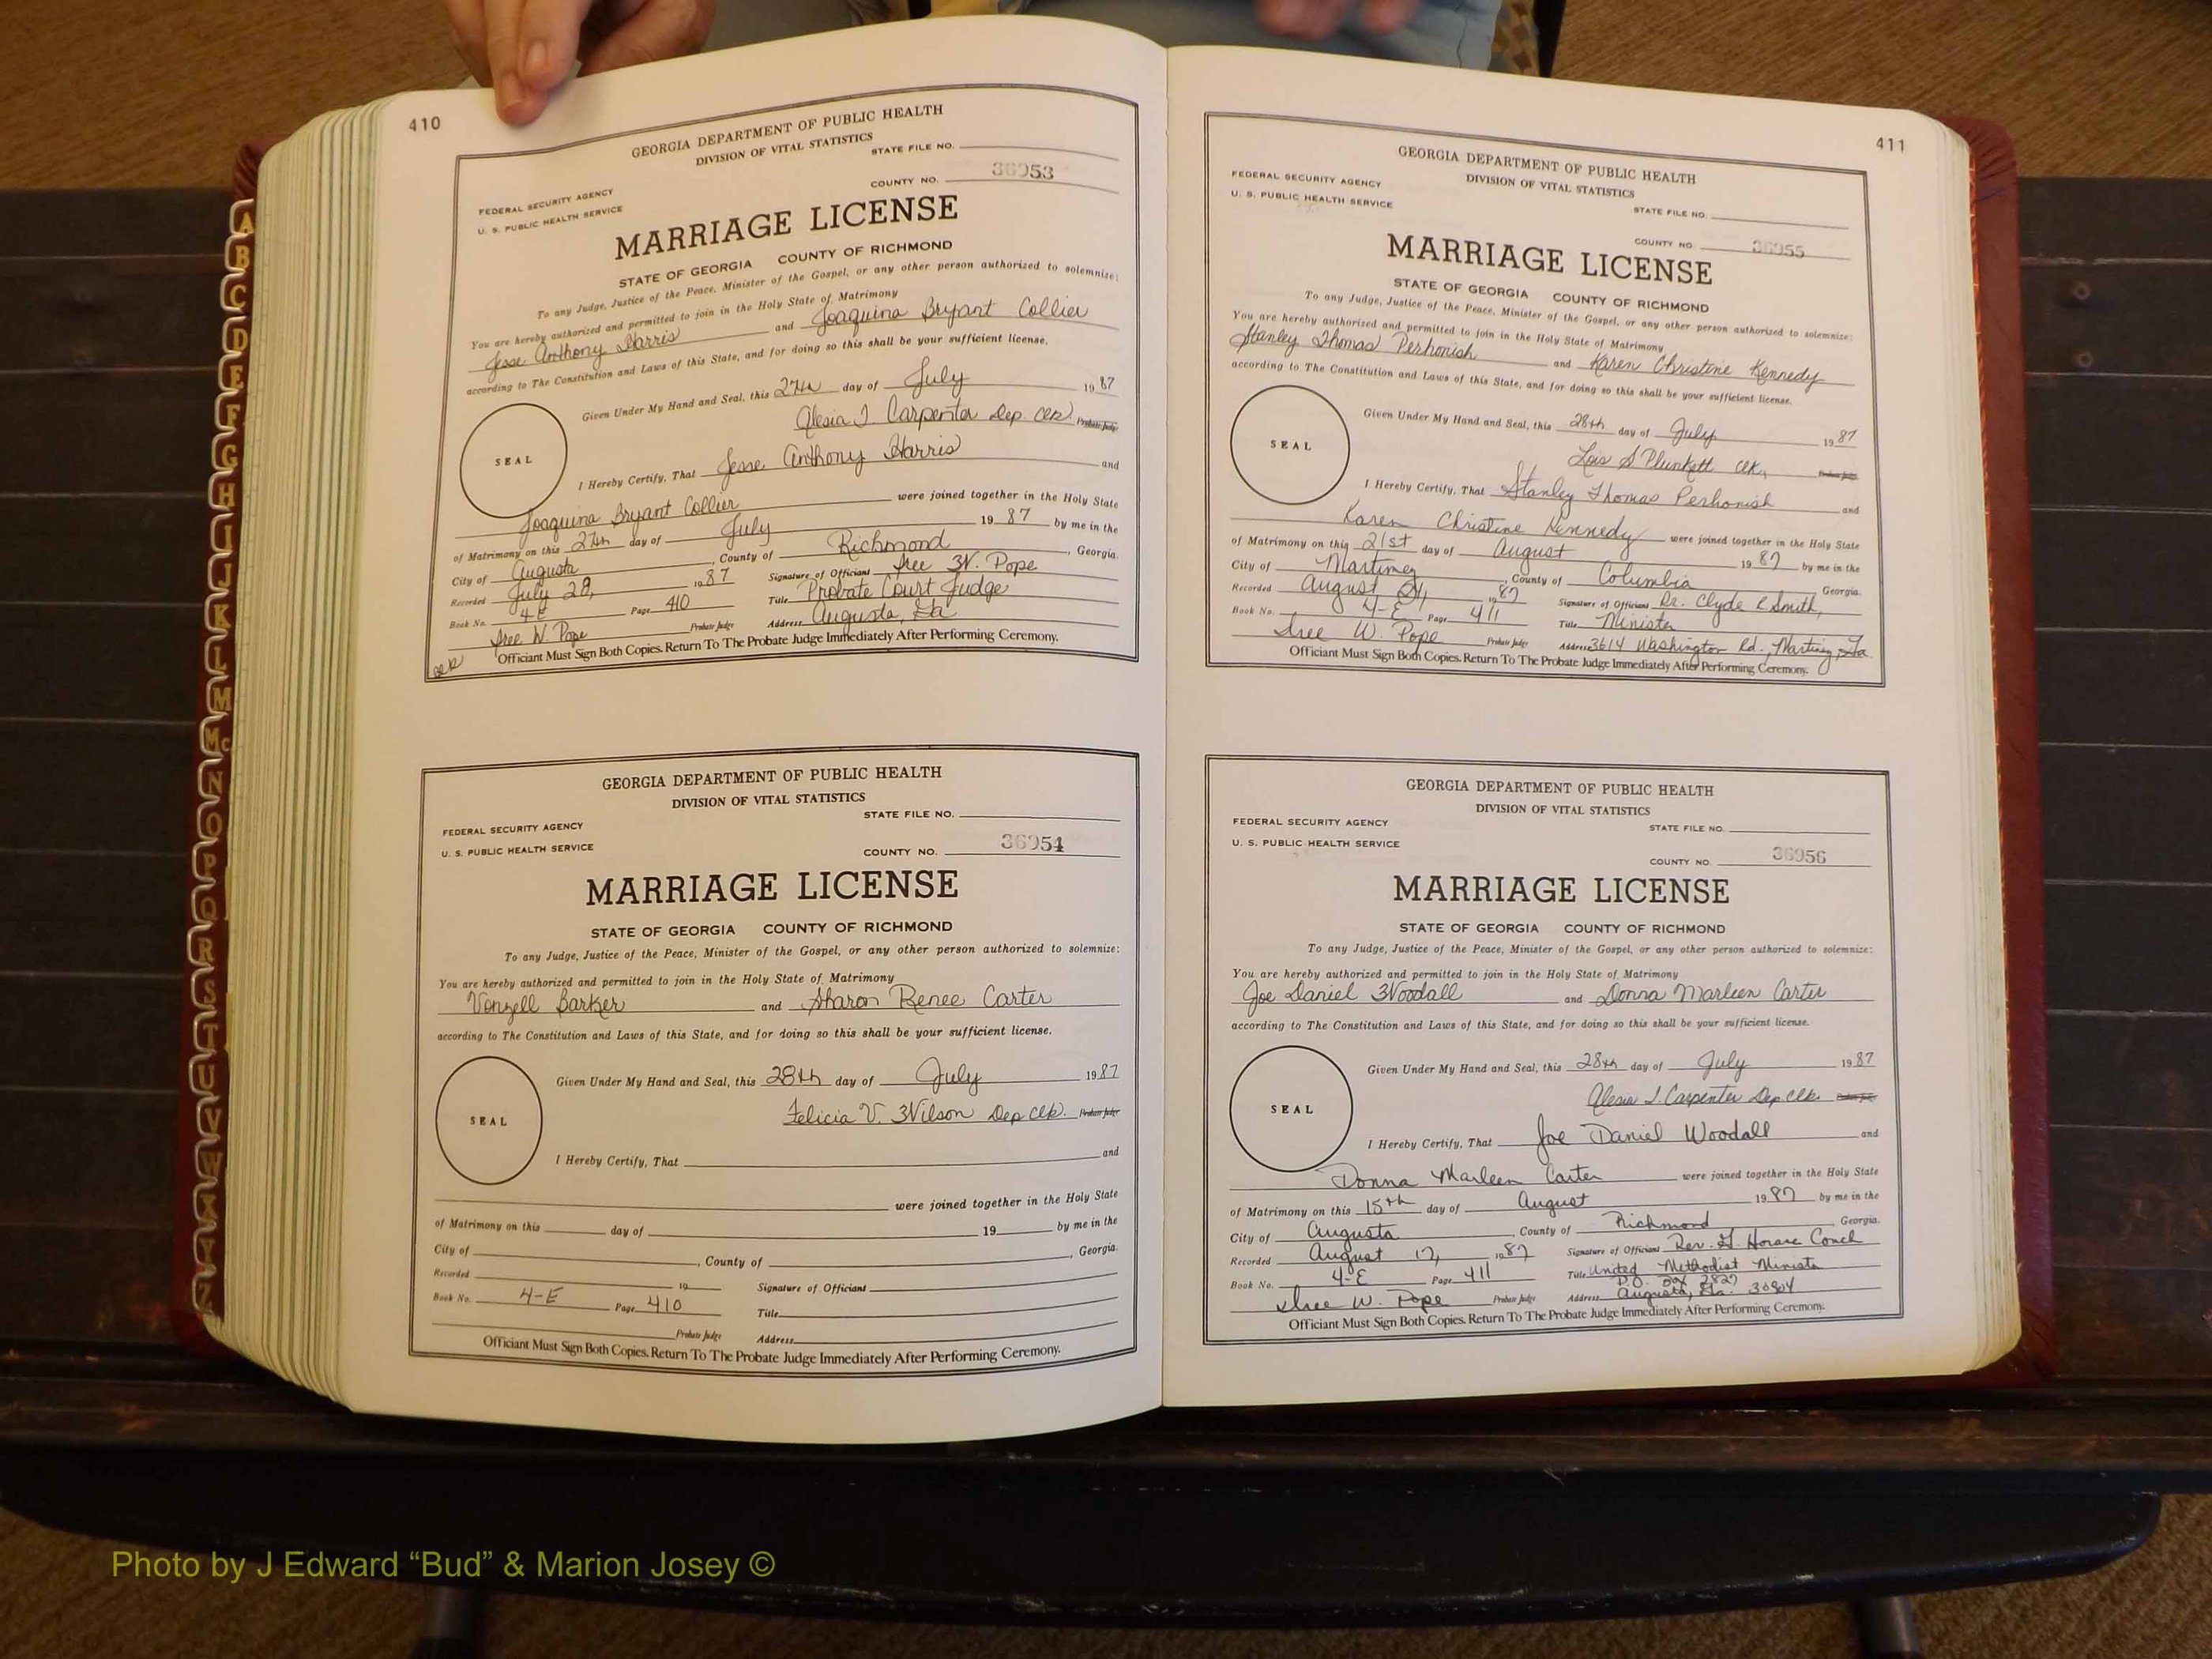 410
GEORGIA DEPARTMENT OF PUBLIC HEALTH
DIVISION OF VITAL STATISTICS
STATE FILE NO.
FEDERAL SECURITY AGENCY
U. S. PUBLIC HEALTH SERVICE
COUNTY NO. 36953
MARRIAGE LICENSE
STATE OF GEORGIA COUNTY OF RICHMOND
To any Judge, Justice of the Peace, Minister of the Gospel, or any other person authorized to solemnize:
You are hereby authorized and permitted to join in the Holy State of Matrimony
Jesse Anthony Harris and Joaquina Bryant Collier
according to The Constitution and Laws of this State, and for doing so this shall be your sufficient license.
Given Under My Hand and Seal, this 27th day of July 1987
Alesia J. Carpenter Dep. Clk. Probate Judge
SEAL
I Hereby Certify, That Jesse Anthony Harris and
Joaquina Bryant Collier were joined together in the Holy State
of Matrimony on this 27th day of July 1987 by me in the
City of Augusta, County of Richmond, Georgia.
Recorded July 29, 1987 Signature of Officiant Isee W. Pope
Book No. 4-E Page 410 Title Probate Court Judge
Isee W. Pope Probate Judge Address Augusta, Ga
Officiant Must Sign Both Copies. Return To The Probate Judge Immediately After Performing Ceremony.
GEORGIA DEPARTMENT OF PUBLIC HEALTH
DIVISION OF VITAL STATISTICS
STATE FILE NO.
FEDERAL SECURITY AGENCY
U. S. PUBLIC HEALTH SERVICE
COUNTY NO. 36954
MARRIAGE LICENSE
STATE OF GEORGIA COUNTY OF RICHMOND
To any Judge, Justice of the Peace, Minister of the Gospel, or any other person authorized to solemnize:
You are hereby authorized and permitted to join in the Holy State of Matrimony
Vonzell Barker and Sharon Renee Carter
according to The Constitution and Laws of this State, and for doing so this shall be your sufficient license.
Given Under My Hand and Seal, this 28th day of July 1987
Felicia V. Wilson Dep Clk. Probate Judge
SEAL
I Hereby Certify, That and
were joined together in the Holy State
of Matrimony on this day of 19 by me in the
City of , County of , Georgia.
Recorded 19 Signature of Officiant
Book No. 4-E Page 410 Title
Probate Judge Address
Officiant Must Sign Both Copies. Return To The Probate Judge Immediately After Performing Ceremony.
411
GEORGIA DEPARTMENT OF PUBLIC HEALTH
DIVISION OF VITAL STATISTICS
FEDERAL SECURITY AGENCY
U. S. PUBLIC HEALTH SERVICE
STATE FILE NO.
COUNTY NO. 36955
MARRIAGE LICENSE
STATE OF GEORGIA COUNTY OF RICHMOND
To any Judge, Justice of the Peace, Minister of the Gospel, or any other person authorized to solemnize:
You are hereby authorized and permitted to join in the Holy State of Matrimony
Stanley Thomas Perhonish and Karen Christine Kennedy
according to The Constitution and Laws of this State, and for doing so this shall be your sufficient license.
Given Under My Hand and Seal, this 28th day of July 1987
Lois S Plunkett Clk, Probate Judge
SEAL
I Hereby Certify, That Stanley Thomas Perhonish and
Karen Christine Kennedy were joined together in the Holy State
of Matrimony on this 21st day of August 1987 by me in the
City of Martinez, County of Columbia Georgia.
Recorded August 24, 1987 Signature of Officiant Dr. Clyde R Smith,
Book No. 4-E Page 411 Title Minister
Isee W. Pope Probate Judge Address 3614 Washington Rd., Martinez, Ga.
Officiant Must Sign Both Copies. Return To The Probate Judge Immediately After Performing Ceremony.
GEORGIA DEPARTMENT OF PUBLIC HEALTH
DIVISION OF VITAL STATISTICS
FEDERAL SECURITY AGENCY
STATE FILE NO.
U. S. PUBLIC HEALTH SERVICE
COUNTY NO. 36956
MARRIAGE LICENSE
STATE OF GEORGIA COUNTY OF RICHMOND
To any Judge, Justice of the Peace, Minister of the Gospel, or any other person authorized to solemnize:
You are hereby authorized and permitted to join in the Holy State of Matrimony
Joe Daniel Woodall and Donna Marleen Carter
according to The Constitution and Laws of this State, and for doing so this shall be your sufficient license.
Given Under My Hand and Seal, this 28th day of July 1987
Alesia J. Carpenter Dep Clk.
SEAL
I Hereby Certify, That Joe Daniel Woodall and
Donna Marleen Carter were joined together in the Holy State
of Matrimony on this 15th day of August 1987 by me in the
City of Augusta, County of Richmond, Georgia.
Recorded August 17, 1987 Signature of Officiant Rev. G. Horace Couch
Book No. 4-E Page 411 Title United Methodist Minister
P.O. Box 2827
Isee W. Pope Probate Judge Address Augusta, Ga. 30904
Officiant Must Sign Both Copies. Return To The Probate Judge Immediately After Performing Ceremony.
A
B
C
D
E
F
G
H
I
J
K
L
M
Mc
N
O
P
Q
R
S
T
U
V
W
X
Y
Z
Photo by J Edward “Bud” & Marion Josey ©